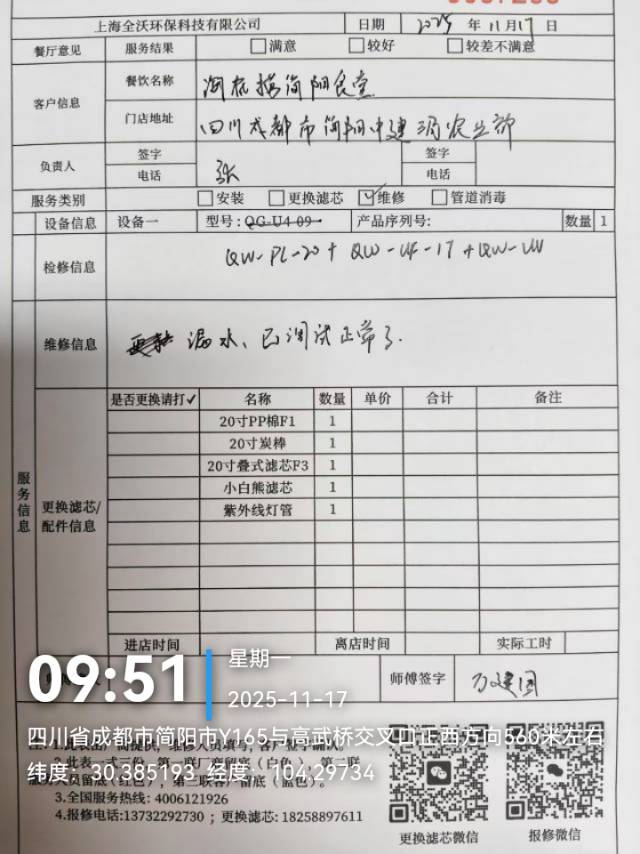 上海全沃环保科技有限公司 日期 2025 年 11 月 17 日
餐厅意见 服务结果 满意 较好 较差不满意
客户信息 餐饮名称 简阳食堂
门店地址 四川成都市简阳中建
负责人 签字 签字
电话 张 电话
服务类别 安装 更换滤芯 维修 管道消毒
设备信息 设备一 型号：QG-U4-09 产品序列号： 数量 1
检修信息 QW-PL-20 + QW-UF-1T + QW-UV
维修信息 漏水、已调试正常了.
服务信息
更换滤芯/配件信息
是否更换请打✓ 名称 数量 单价 合计 备注
20寸PP棉F1 1
20寸炭棒 1
20寸叠式滤芯F3 1
小白熊滤芯 1
紫外线灯管 1
进店时间 离店时间 实际工时
师傅签字 万建国
09:51 星期一
2025-11-17
四川省成都市简阳市Y165与高武桥交叉口正西方向560米左右
纬度：30.385193 经度：104.29734
3.全国服务热线：4006121926
4.报修电话:13732292730 ；更换滤芯: 18258897611
更换滤芯微信 报修微信